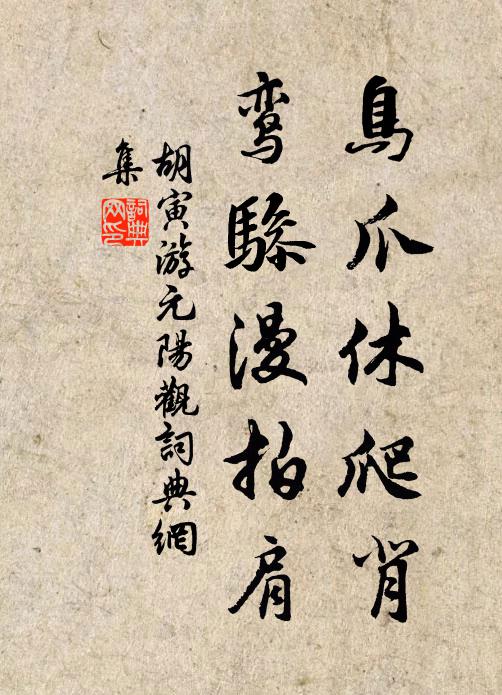 鳥爪休爬背
鸾驂漫拍肩
胡寅游元陽觀詞典網
集
詞典
网印